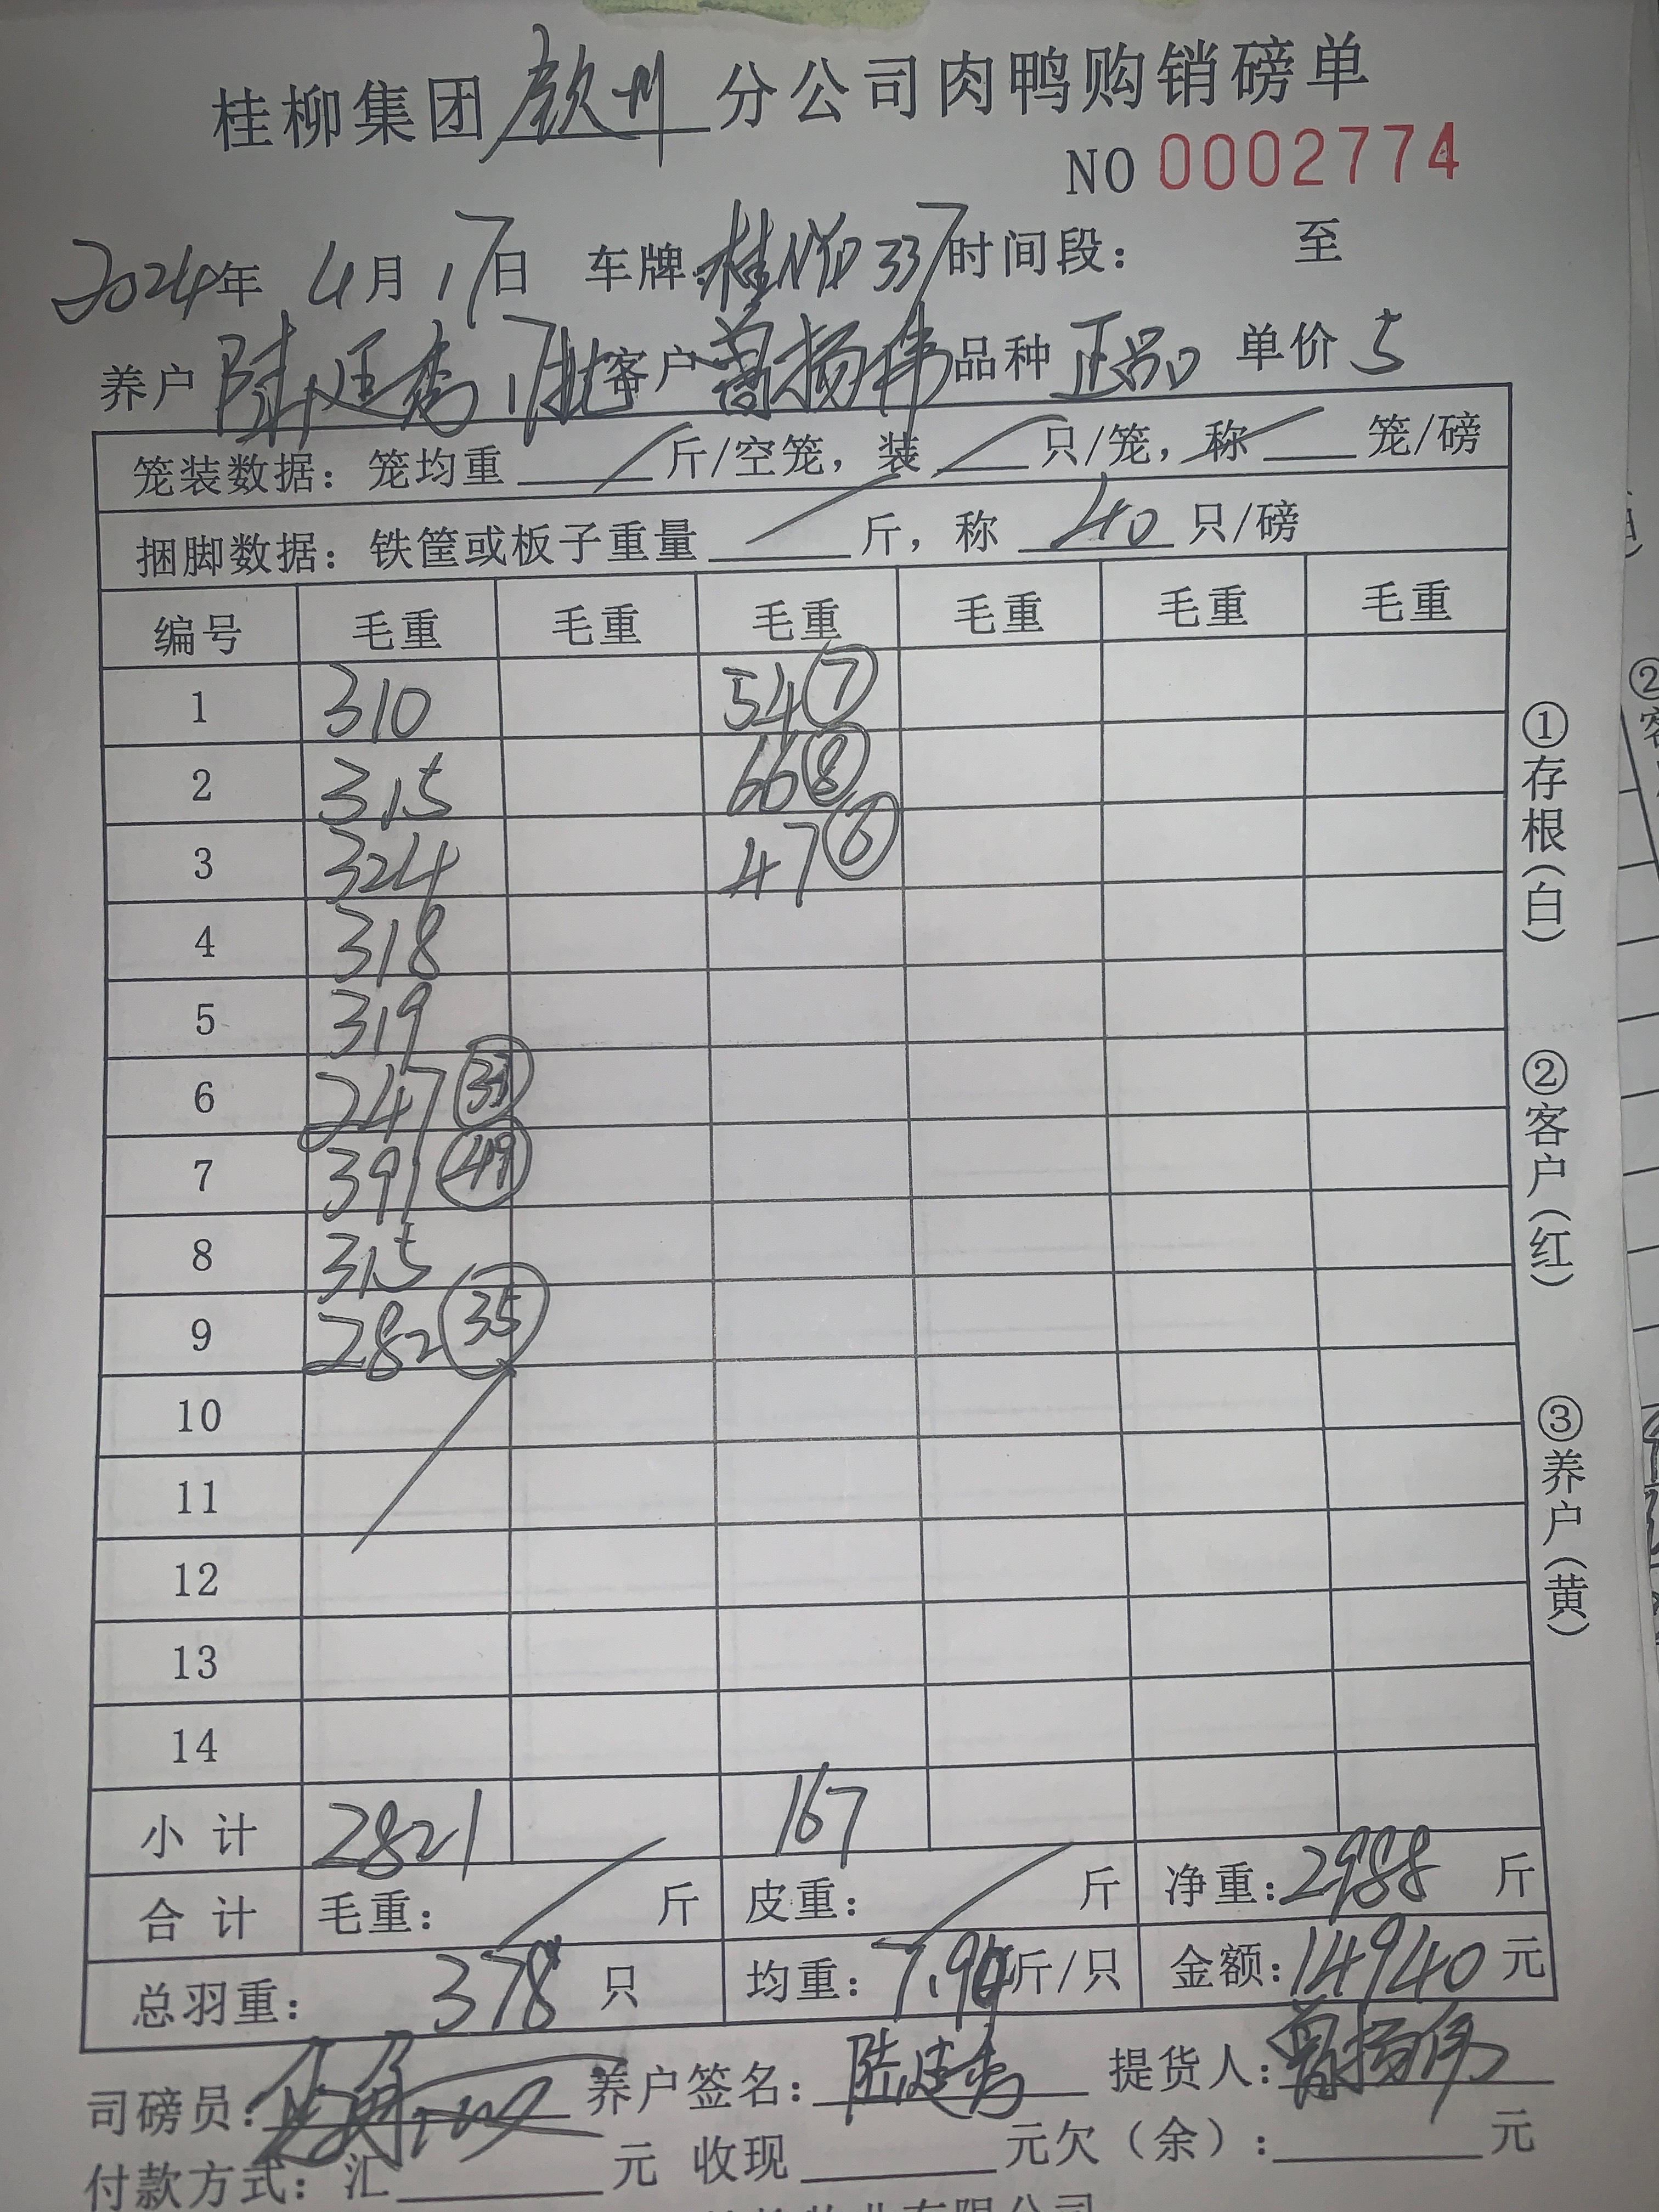 桂柳集团 钦州 分公司肉鸭购销磅单
NO 0002774
2024年 4月17日 车牌: 桂N 337 时间段: 至
养户 陆廷秀 17批 客户 曾扬伟 品种 正品 单价 5
笼装数据: 笼均重 斤/空笼, 装 只/笼, 称 笼/磅
捆脚数据: 铁筐或板子重量 斤, 称 40 只/磅
编号 毛重 毛重 毛重 毛重 毛重 毛重
1 310 54 ⑦
2 315 66 ⑧
3 324 47 ⑥
4 318
5 319
6 247
7 391 49
8 315
9 282 35
10
11
12
13
14
小计 2821 167
合计 毛重: 斤 皮重: 斤 净重: 2988 斤
总羽重: 378 只 均重: 7.90 斤/只 金额: 14940 元
司磅员: 养户签名: 陆廷秀 提货人: 曾扬伟
付款方式: 汇 元 收现 元欠(余): 元
业有限公司
①存根(白)
②客户(红)
③养户(黄)